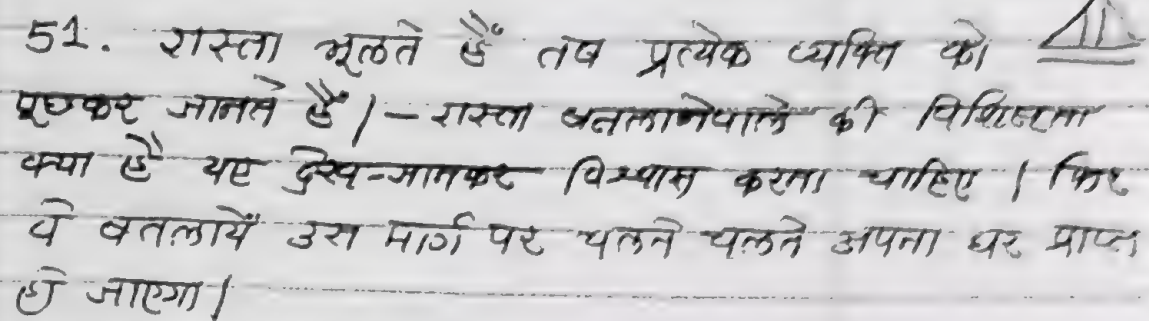 51. रास्ता भूलते हैं तब प्रत्येक व्यक्ति को
पूछकर जानते हैं। - रास्ता बतलानेवाले की विशिष्टता
क्या है यह देख-जानकर विश्वास करना चाहिए। फिर
वे बतलायें उस मार्ग पर चलते चलते अपना घर प्राप्त
हो जाएगा।